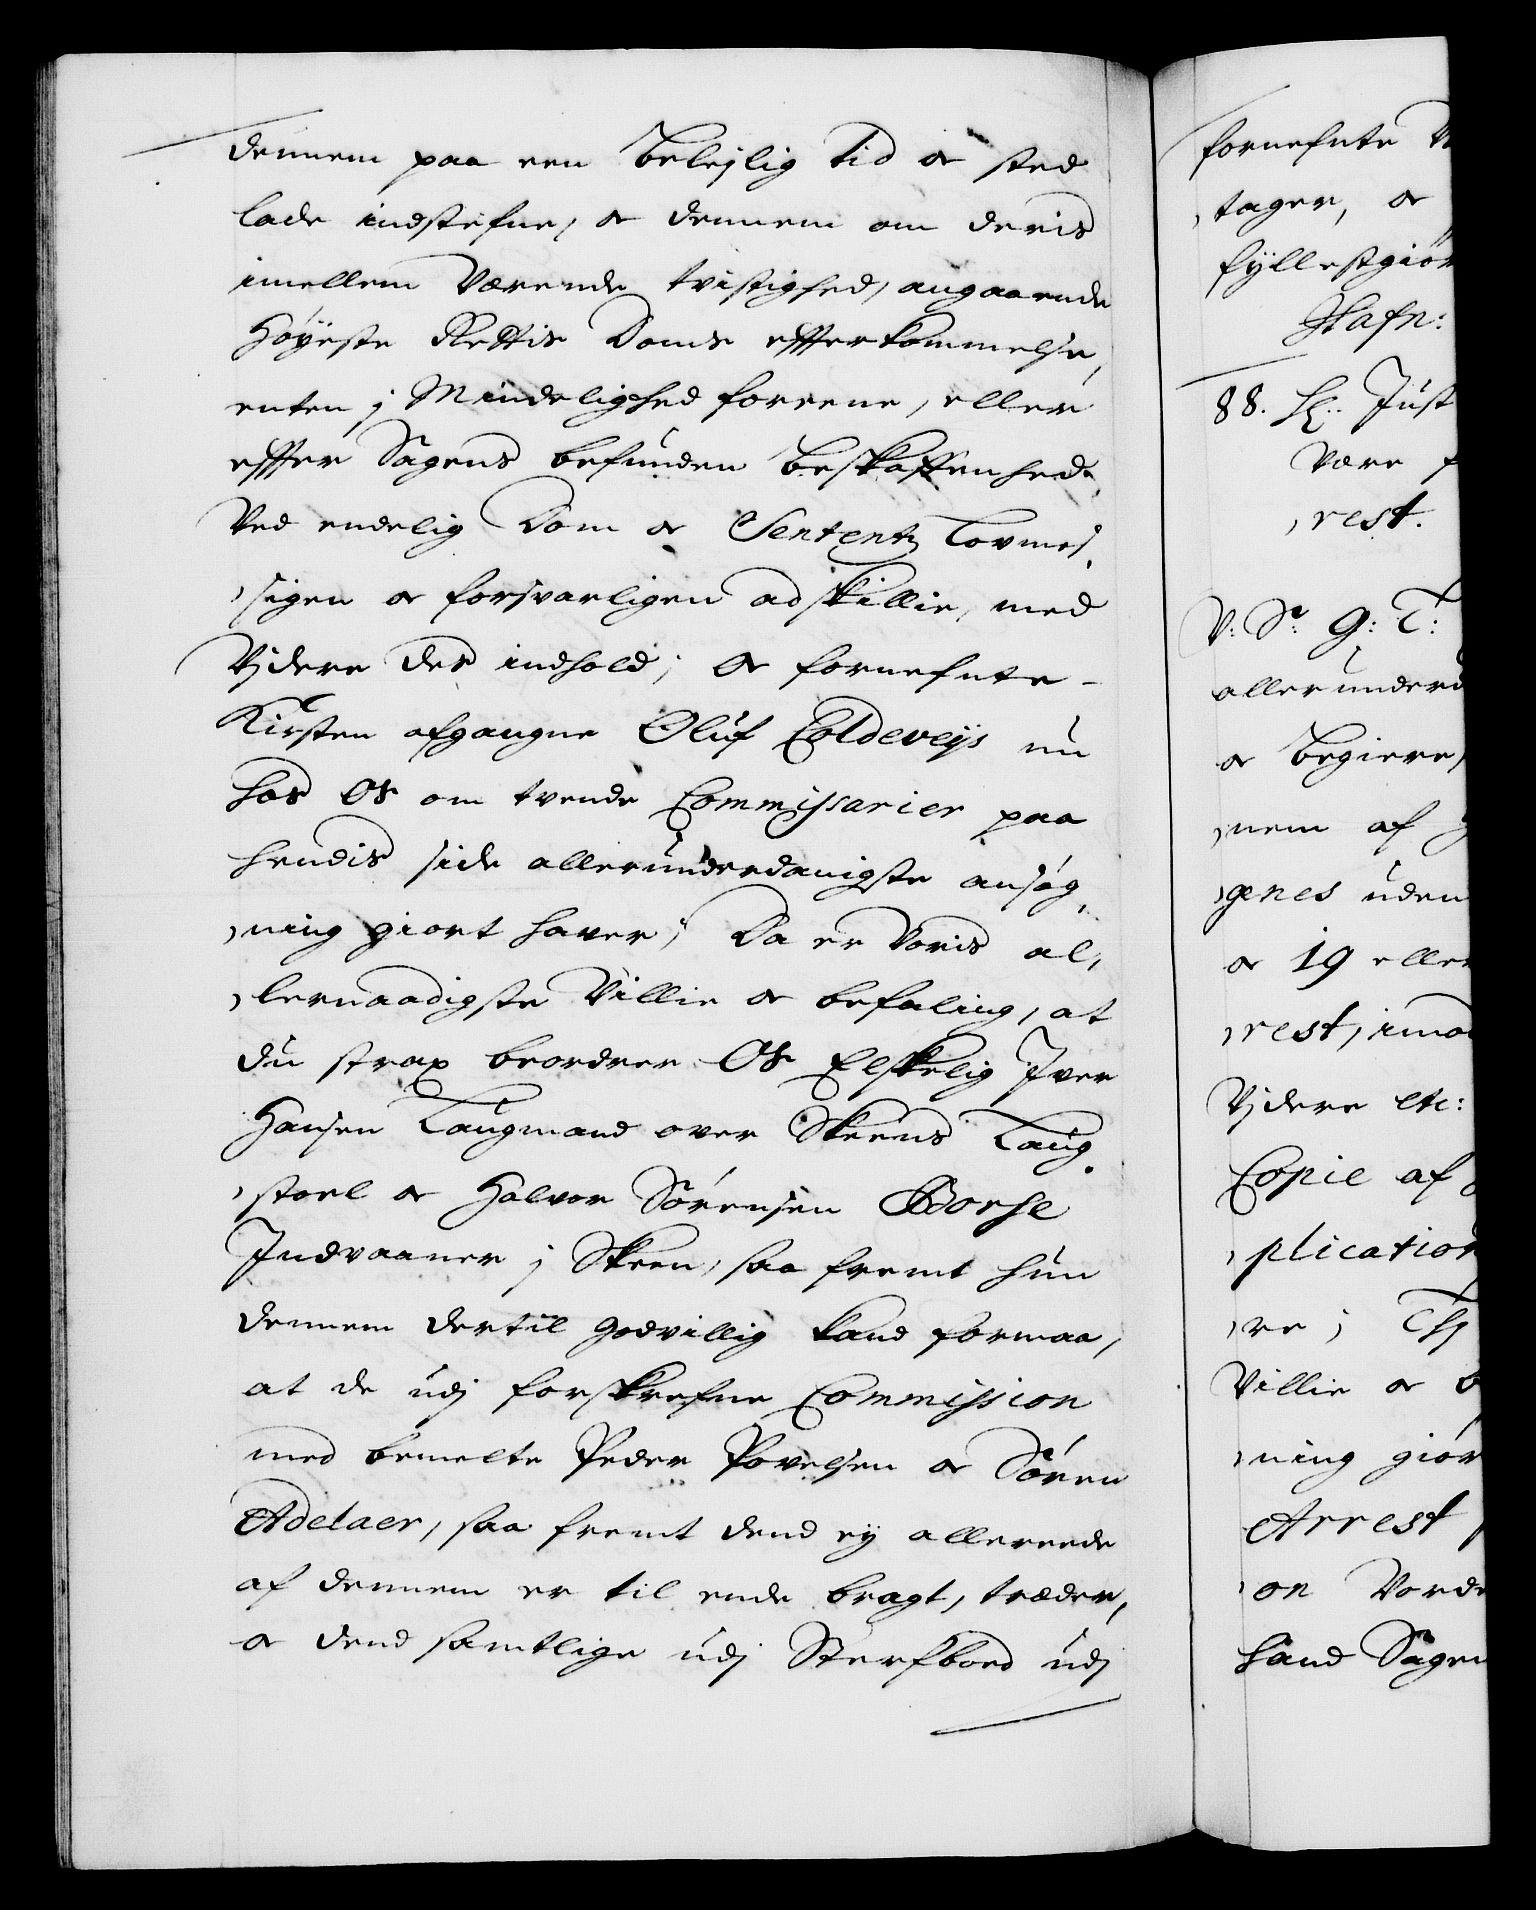 dennem paa een beleylig tid oc sted
lade indstefne, oc dennem om deris
imellem værende tvistighed, angaaende
Höyeste Rettis Doms efterkommelse,
enten j Mindelighed foreene, eller
efter Sagens befunden beskaffenhed,
Ved endelig Dom oc Sententz Lovmes,
,sigen oc forsvarligen adskillie, med
Vjdere des indhold; Oc fornefnte
Kirsten afgangne Oluf Coldeveys nu
hos Os om tvende Commissarier paa
hendis side allerunderdanigste ansøg,
,ning giort haver; Da er Voris al,
,lernaadigste Villie oc befaling, at
du strax beordrer Os Elskelig Jver
Hansen Laugmand over Skeens Laug,
,stoel oc Halvor Sörensen Borse
Indvaaner j Skeen, saa fremt hun
dennem dertil godvillig kand formaa,
at de udj forskrefne Commission
med bemelte Peder Povelsen oc Sören
Adelaer, saa fremt dend ey allereede
af dennem er til ende bragt, træder,
oc dend samtlige udj Sterfboed udj
fornefnte
,tager, oc
fyllestgiör
Hafn:
88. Just
Være
,rest.
V: Sr: G: T:
allerunderd
oc begiere,
,nem af
,genes uden
oc 19 eller
,rest, imod
Vjdere etc:
Copie af
,plication
,re;
Villie oc b
,ning giör
Arrest
,on Vorde
hand Sagen